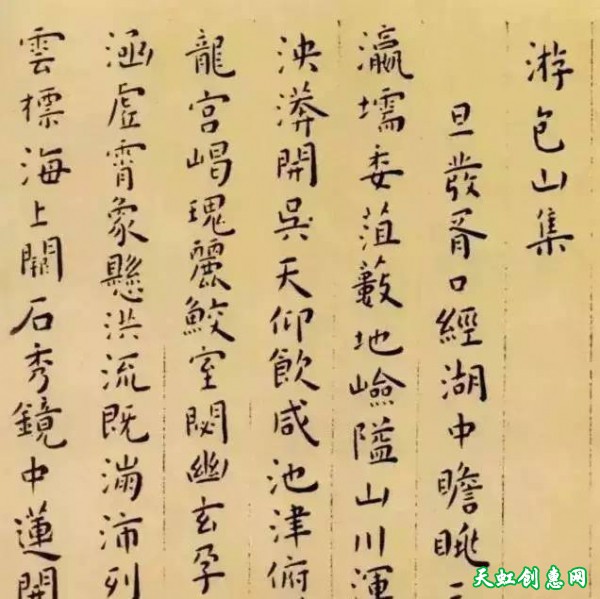 游包山集
旦發胥口經湖中瞻眺
瀛壖委菹藪地嶮隘山川渾
泱漭開吳天仰飲咸池津俯
龍宮崵瑰麗鮫室閟幽玄孕
涵虛霄象懸洪流既滈沛列
雲標海上關石秀鏡中蓮開
天虹创意网